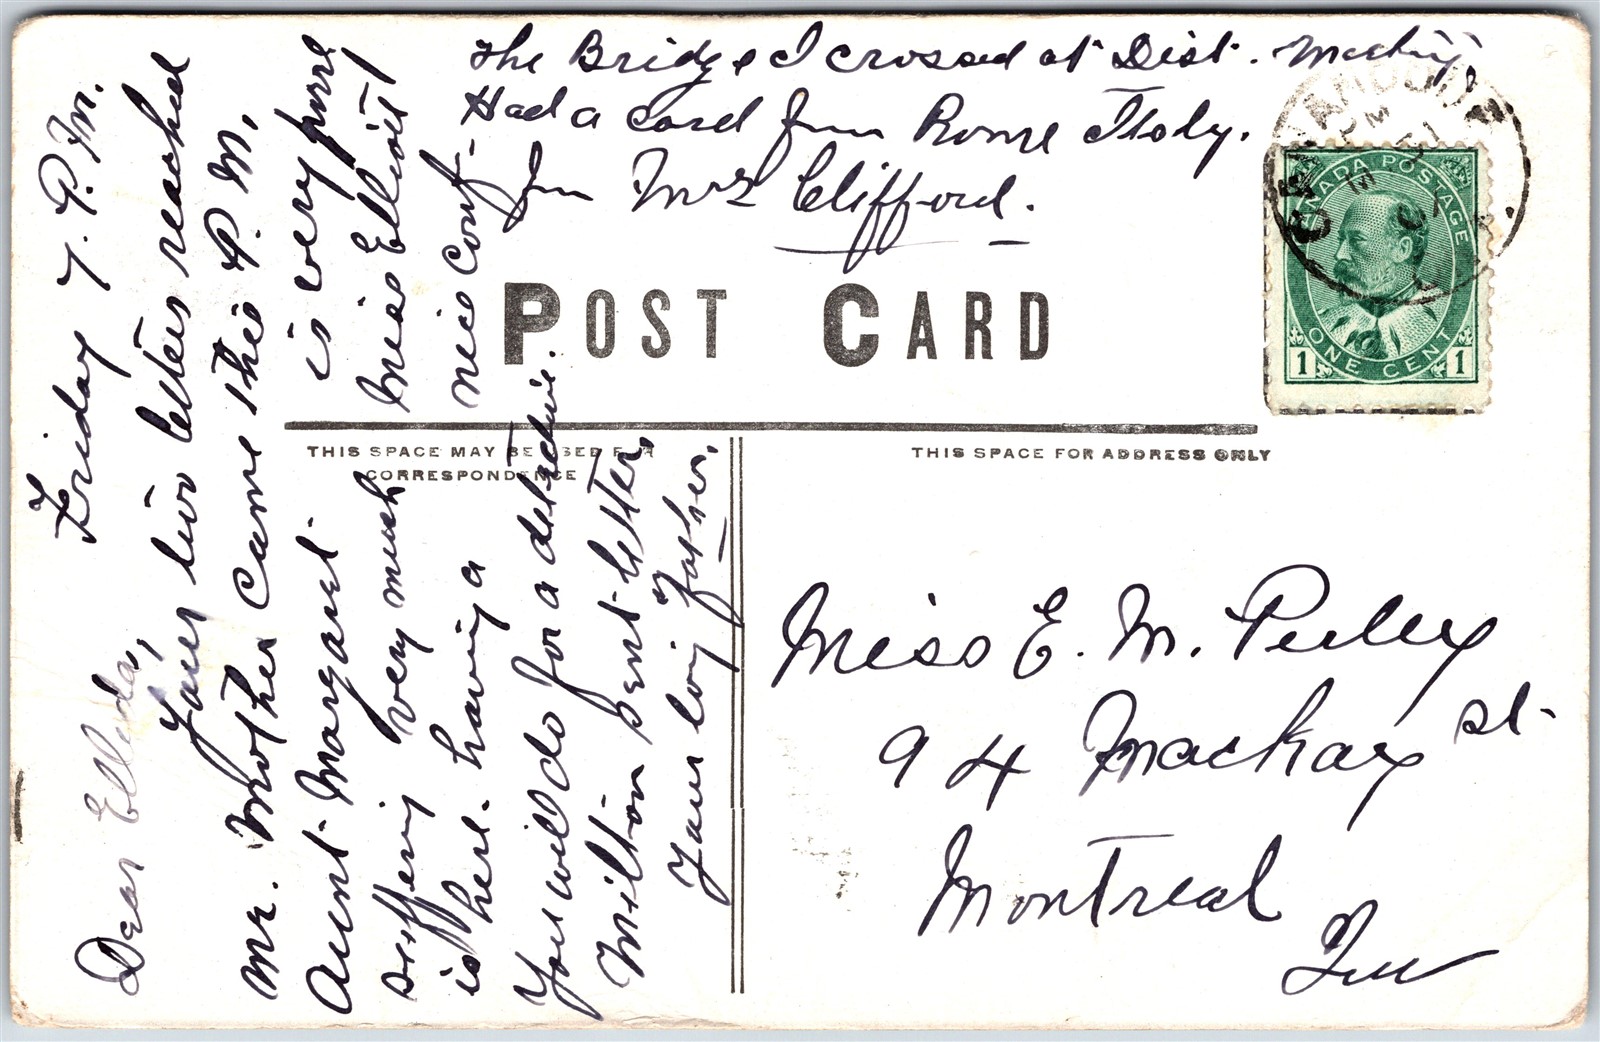 The Bridge I crossed at Dist. Meeting
Had a card from Rome Italy.
from Mrs Clifford.
POST CARD
CANADA POSTAGE
ONE CENT
1 1
THIS SPACE MAY BE USED FOR
CORRESPONDENCE
THIS SPACE FOR ADDRESS ONLY
Friday 7. P.M.
Dear Ellida,
Your two letters reached
me. Mother came this P.M.
Aunt Margaret is very poor
suffering very much Miss Elliott
is here. having a nice conf-
You will do for a detective.
Milton sent letter.
Your lovi Father.
Miss E. M. Pulley
94 Mackay St.
Montreal
Que